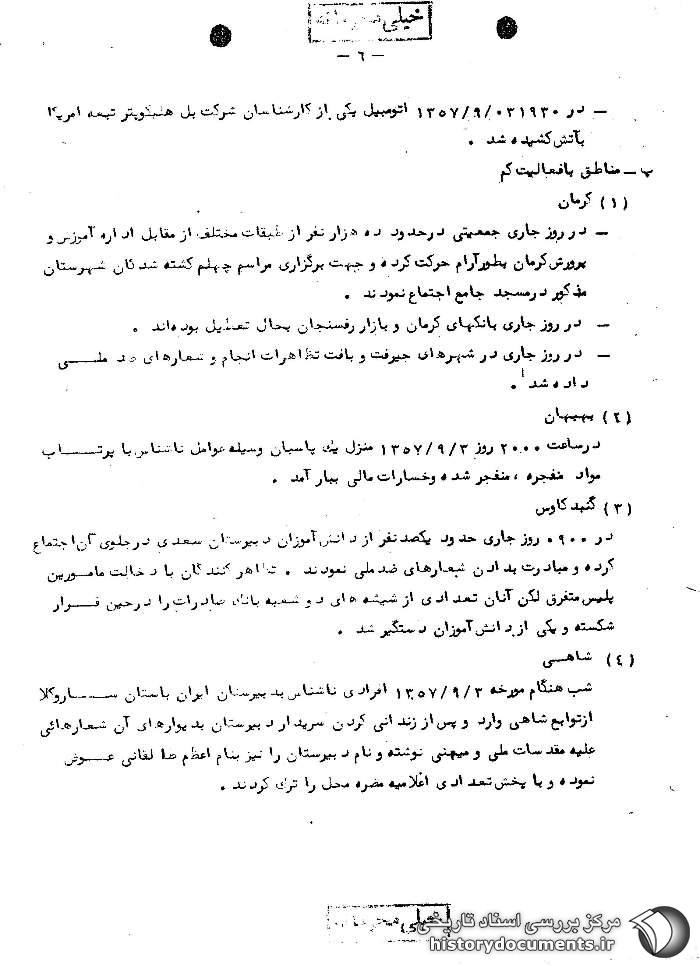 خیلی محرمانه
- ٦ -
- در ٠٣١٩٣٠/٩/١٣٥٧ اتومبیل یکی از کارشناسان شرکت بل هلیکوپتر تبعه امریکا
بآتش کشیده شد .
پ - مناطق بافعالیت کم
(١) کرمان
- در روز جاری جمعیتی درحدود ده هزار نفر از طبقات مختلف از مقابل اداره آموزش و
پرورش کرمان بطور آرام حرکت کرده و جهت برگزاری مراسم چهلم کشته شدگان شهرستان
مذکور درمسجد جامع اجتماع نمودند .
- در روز جاری بانکهای کرمان و بازار رفسنجان بحال تعطیل بوده‌اند .
- در روز جاری در شهرهای جیرفت و بافت تظاهرات انجام و شعارهای ضد ملی
داده شد .
(٢) بهبهان
درساعت ٢٠٠٠ روز ١٣٥٧/٩/٣ منزل یك پاسبان وسیله عوامل ناشناس با پرتاب
مواد منفجره ، منفجر شده وخسارات مالی ببار آمد .
(٣) گنبد کاوس
در ٠٩٠٠ روز جاری حدود یکصد نفر از دانش آموزان دبیرستان سعدی درجلوی آن اجتماع
کرده و مبادرت بدادن شعارهای ضد ملی نمودند . تظاهر کنندگان با دخالت مامورین
پلیس متفرق لکن آنان تعدادی از شیشه های دو شعبه بانك صادرات را درحین فرار
شکسته و یکی از دانش آموزان دستگیر شد .
(٤) شاهی
شب هنگام مورخه ١٣٥٧/٩/٣ افرادی ناشناس بدبیرستان ایران باستان ساروکلا
ازتوابع شاهی وارد و پس از زندانی کردن سریدار دبیرستان بدیوارهای آن شعارهائی
علیه مقدسات ملی و میهنی نوشته و نام دبیرستان را نیز بنام اعظم طالقانی عوض
نموده و با پخش تعدادی اعلامیه مضره محل را ترك کردند .
خیلی محرمانه
مرکز بررسی اسناد تاریخی
historydocuments.ir